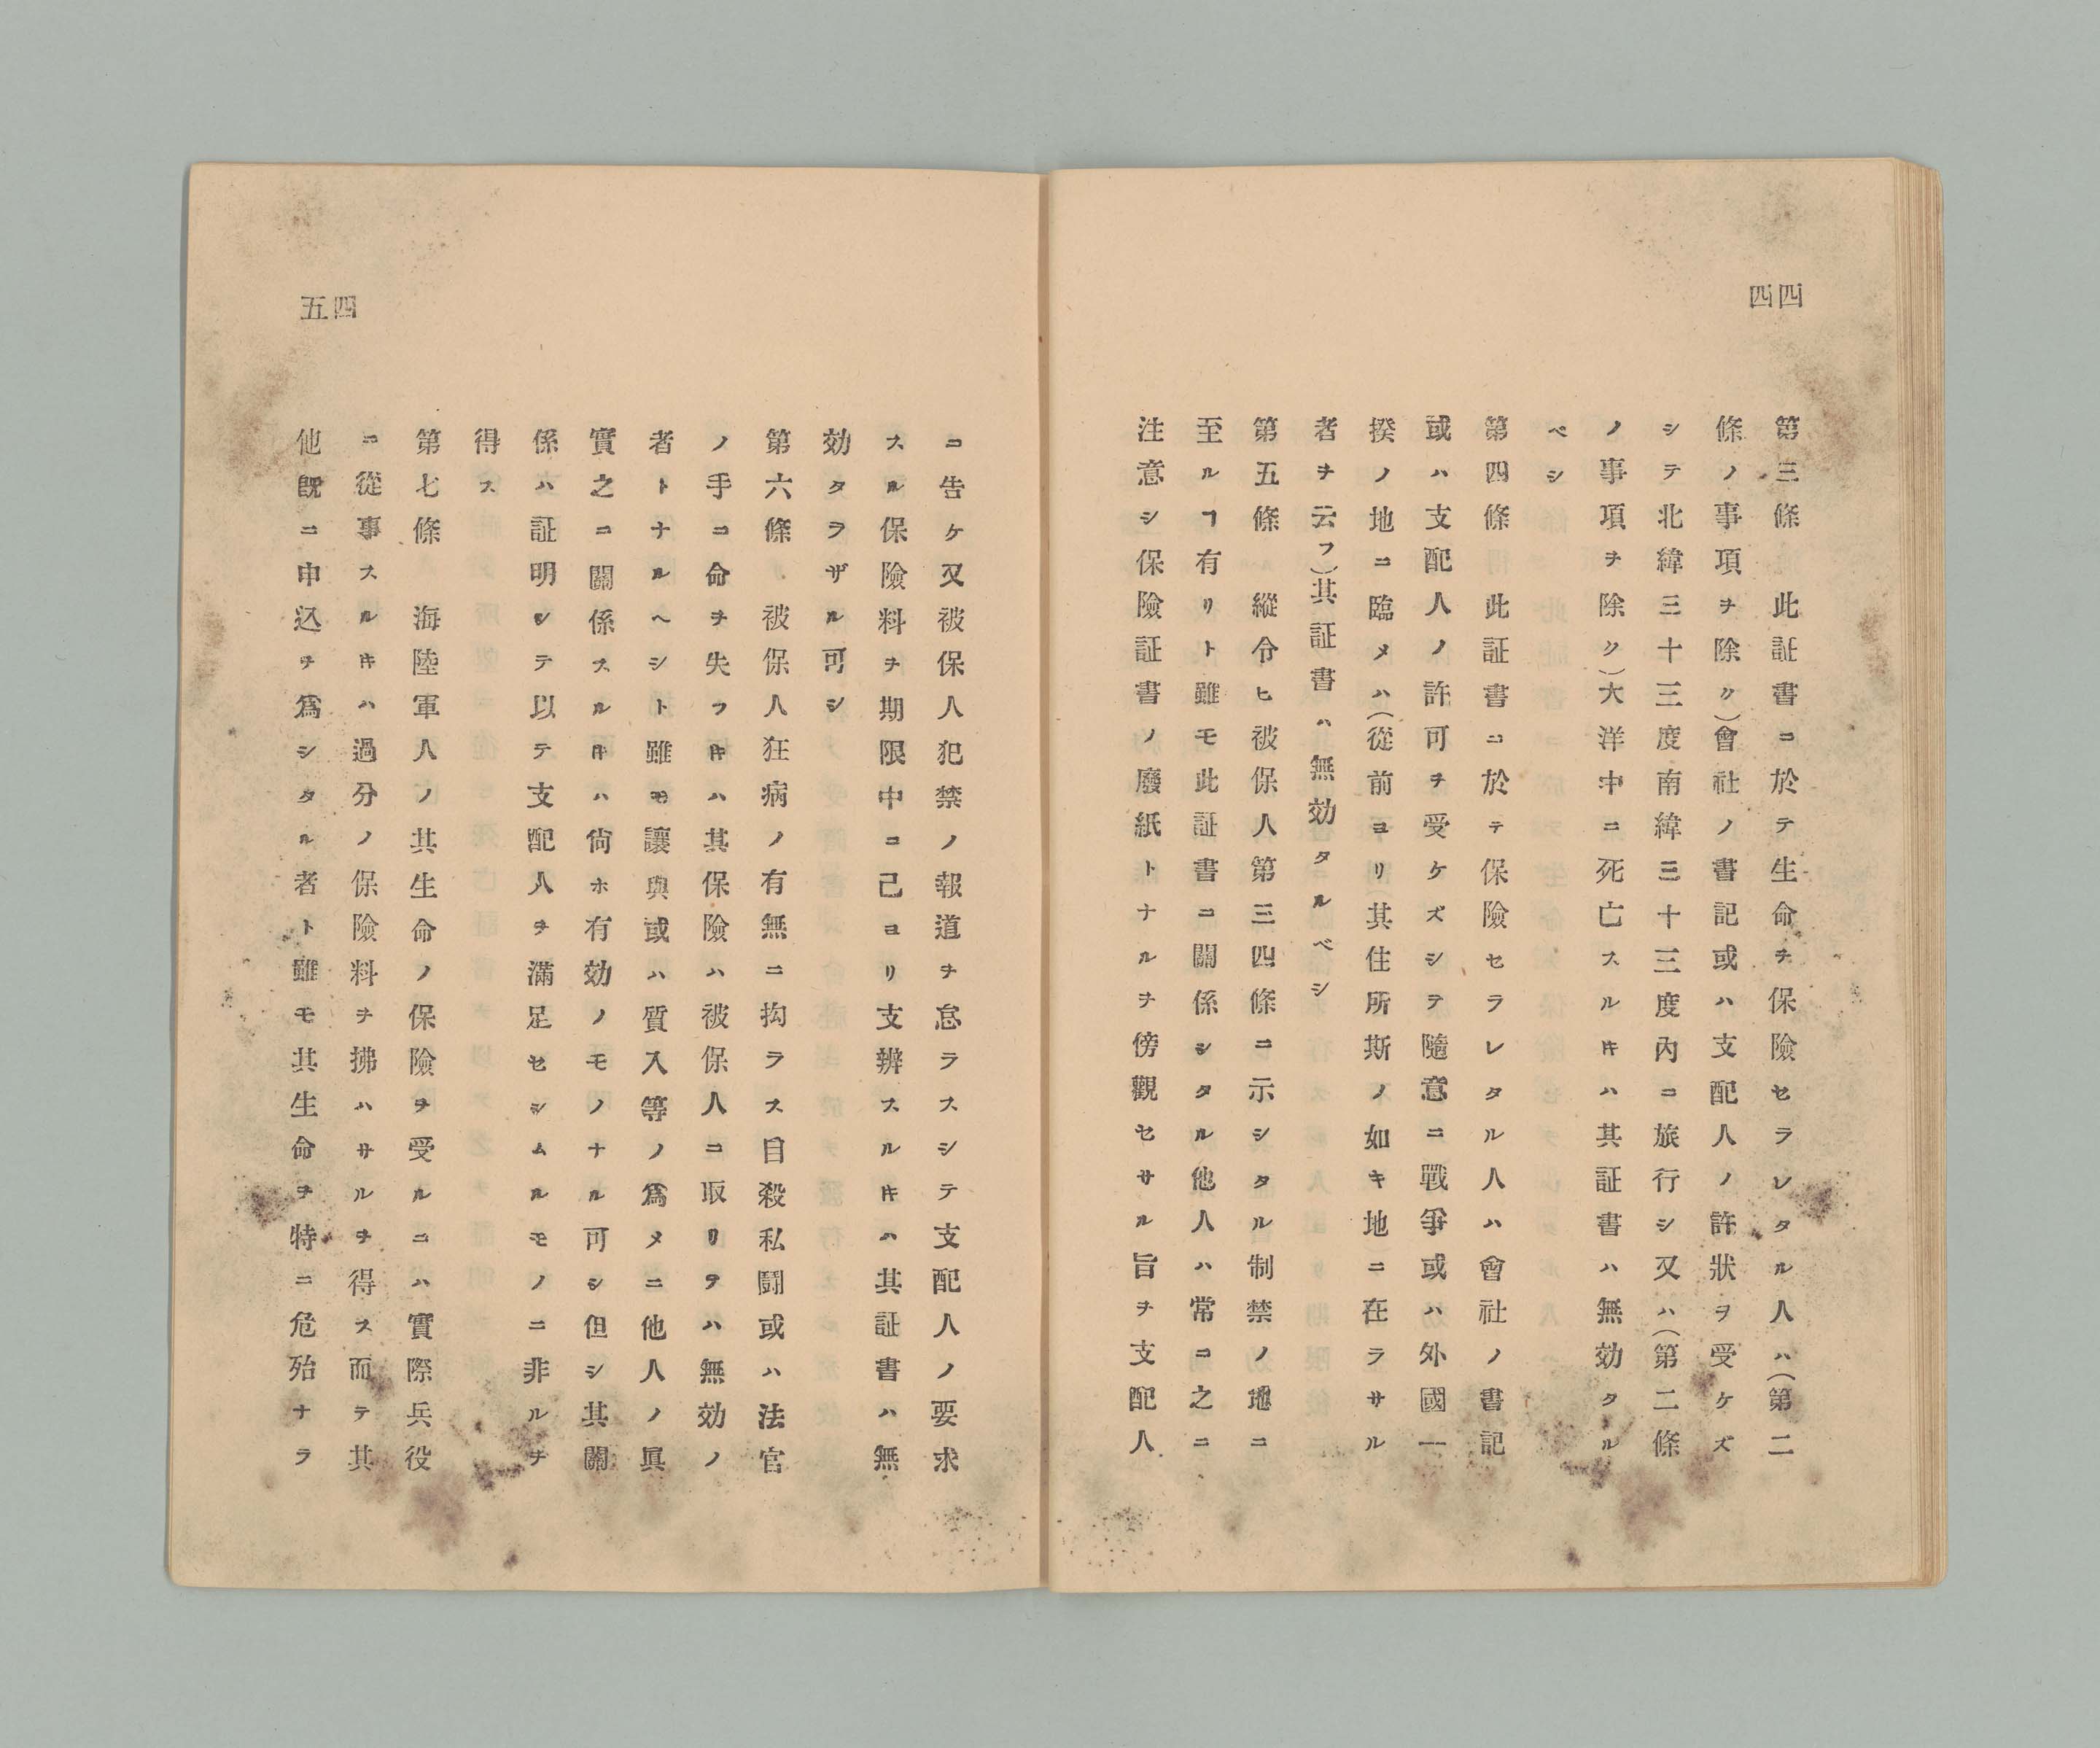 四四
第三條　此証書ニ於テ生命ヲ保險セラレタル人ハ（第二
條ノ事項ヲ除ク）會社ノ書記或ハ支配人ノ許狀ヲ受ケズ
シテ北緯三十三度南緯三十三度內ニ旅行シ又ハ（第二條
ノ事項ヲ除ク）大洋中ニ死亡スル𪜈ハ其証書ハ無効タル
ベシ
第四條　此証書ニ於テ保險セラレタル人ハ會社ノ書記
或ハ支配人ノ許可ヲ受ケズシテ隨意ニ戰爭或ハ外國一
揆ノ地ニ臨メハ（從前ヨリ其住所斯ノ如キ地ニ在ラサル
者ヲ云フ）其証書ハ無効タルベシ
第五條　縱令ヒ被保人第三四條ニ示シタル制禁ノ地ニ
至ルヿ有リト雖モ此証書ニ關係シタル他人ハ常ニ之ニ
注意シ保險証書ノ廢紙トナルヲ傍觀セサル旨ヲ支配人
四五
ニ告ケ又被保人犯禁ノ報道ヲ怠ラスシテ支配人ノ要求
スル保險料ヲ期限中ニ己ヨリ支辨スル𪜈ハ其証書ハ無
効タラザル可シ
第六條　被保人狂病ノ有無ニ拘ラス自殺私鬪或ハ法官
ノ手ニ命ヲ失フ𪜈ハ其保險ハ被保人ニ取リテハ無効ノ
者トナルヘシト雖モ讓與或ハ質入等ノ爲メニ他人ノ眞
實之ニ關係スル𪜈ハ尙ホ有効ノモノナル可シ但シ其關
係ハ証明シテ以テ支配人ヲ滿足セシムルモノニ非ルヲ
得ス
第七條　海陸軍人ノ其生命ノ保險ヲ受ルニハ實際兵役
ニ從事スル𪜈ハ過分ノ保險料ヲ拂ハサルヲ得ス而テ其
他旣ニ申込ヲ爲シタル者ト雖モ其生命ヲ特ニ危殆ナラ